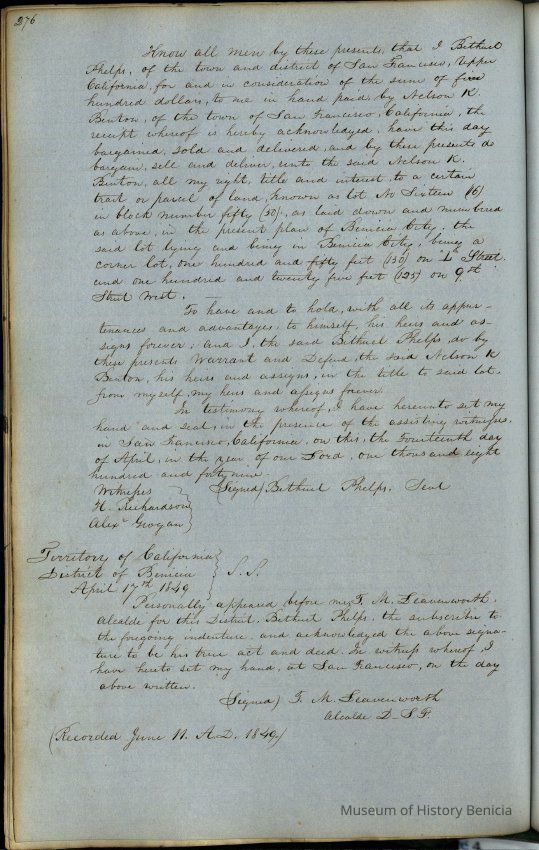 276
Know all men by these presents, that I Bethuel
Phelps, of the town and district of San Francisco, Upper
California, for and in consideration of the sum of five
hundred dollars, to me in hand paid by Nelson K.
Benton, of the town of San Francisco, California, the
receipt whereof is hereby acknowledged, have this day
bargained, sold and delivered, and by these presents do
bargain, sell and deliver, unto the said Nelson K.
Benton, all my right, title and interest, to a certain
tract or parcel of land, known as lot No Sixteen (16)
in block number fifty (50), as laid down and numbered
as above, in the present plan of Benicia City, the
said lot lying and being in Benicia City, being a
corner lot, one hundred and fifty feet (150) on Street.
and one hundred and twenty five feet (125) on 9th
Street West.
To have and to hold, with all its appur-
tenances and advantages, to himself, his heirs and as-
signs forever; and I, the said Bethuel Phelps, do by
these presents Warrant and Defend, the said Nelson K
Benton, his heirs and assigns, in the title to said lot,
from myself, my heirs and assigns forever.
In testimony whereof, I have hereunto set my
hand and seal, in the presence of the assisting witnesses,
in San Francisco, California, on this, the Fourteenth day
of April, in the year of our Lord, one thousand eight
hundred and forty nine
Witnesses } (Signed) Bethuel Phelps. Seal
H. Richardson
Alexr Grogan
Territory of California }
District of Benicia } S.S.
April 17th 1849
Personally appeared before me, T. M. Leavenworth.
Alcalde for this District. Bethuel Phelps, the subscriber to
the foregoing indenture, and acknowledged the above signa-
ture to be his true act and deed. In witness whereof, I
have hereto set my hand, at San Francisco, on the day
above written.
(Signed) T. M. Leavenworth
Alcalde D. S. F.
(Recorded June 11. A.D. 1849)
Museum of History Benicia